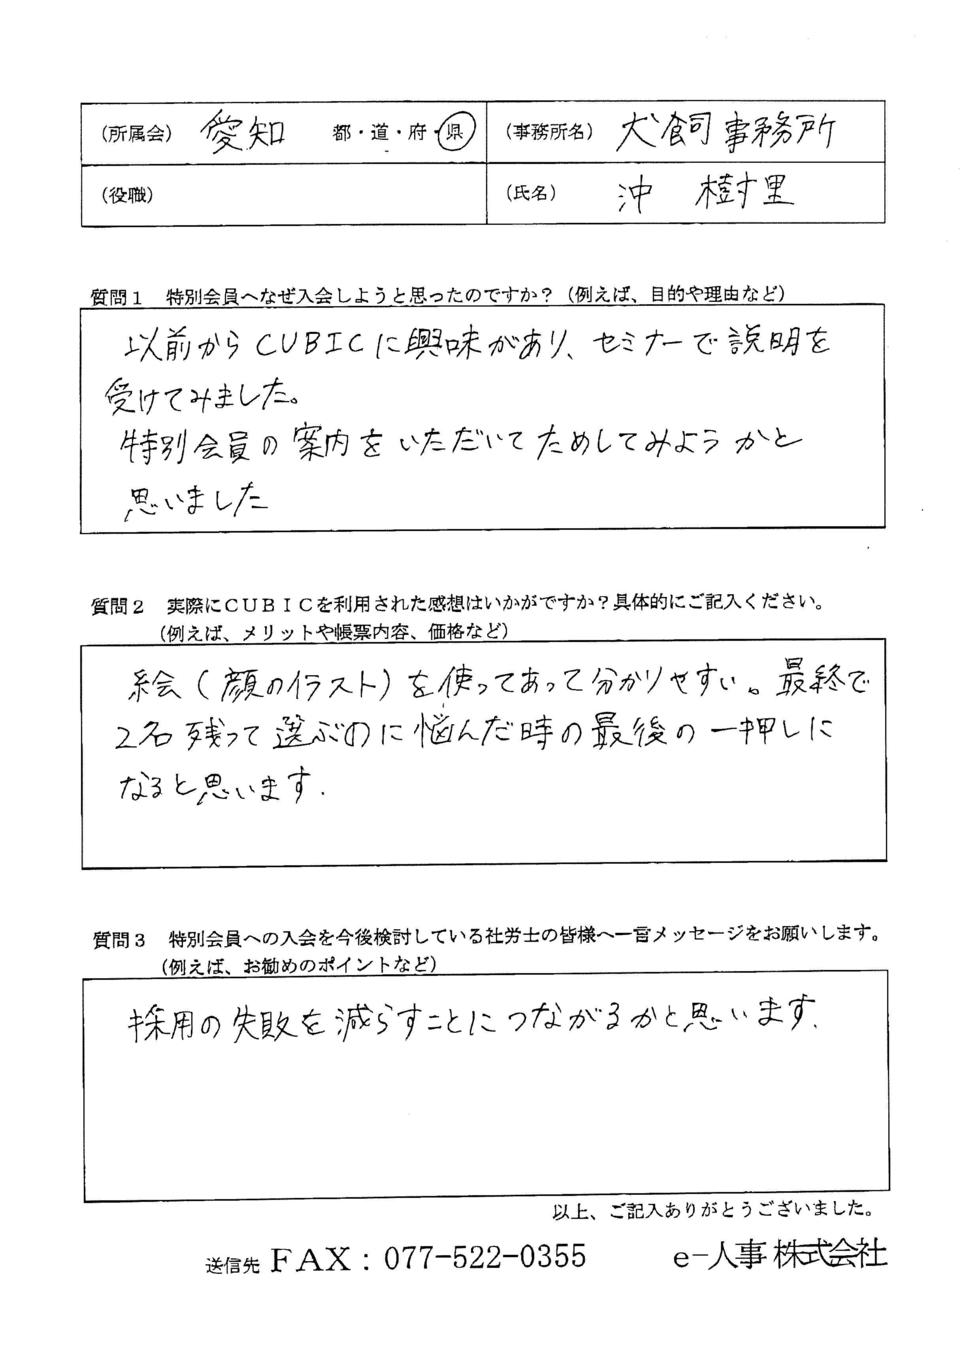 (所属会) 愛知 都・道・府・県 (事務所名) 犬飼事務所
(役職) (氏名) 沖 樹里
質問1 特別会員へなぜ入会しようと思ったのですか？(例えば、目的や理由など)
以前からCUBICに興味があり、セミナーで説明を
受けてみました。
特別会員の案内をいただいてためしてみようかと
思いました
質問2 実際にCUBICを利用された感想はいかがですか？具体的にご記入ください。
(例えば、メリットや帳票内容、価格など)
絵(顔のイラスト)を使ってあって分かりやすい。最終で
2名残って選ぶのに悩んだ時の最後の一押しに
なると思います.
質問3 特別会員への入会を今後検討している社労士の皆様へ一言メッセージをお願いします。
(例えば、お勧めのポイントなど)
採用の失敗を減らすことにつながるかと思います.
以上、ご記入ありがとうございました。
送信先 FAX：077-522-0355 e-人事株式会社